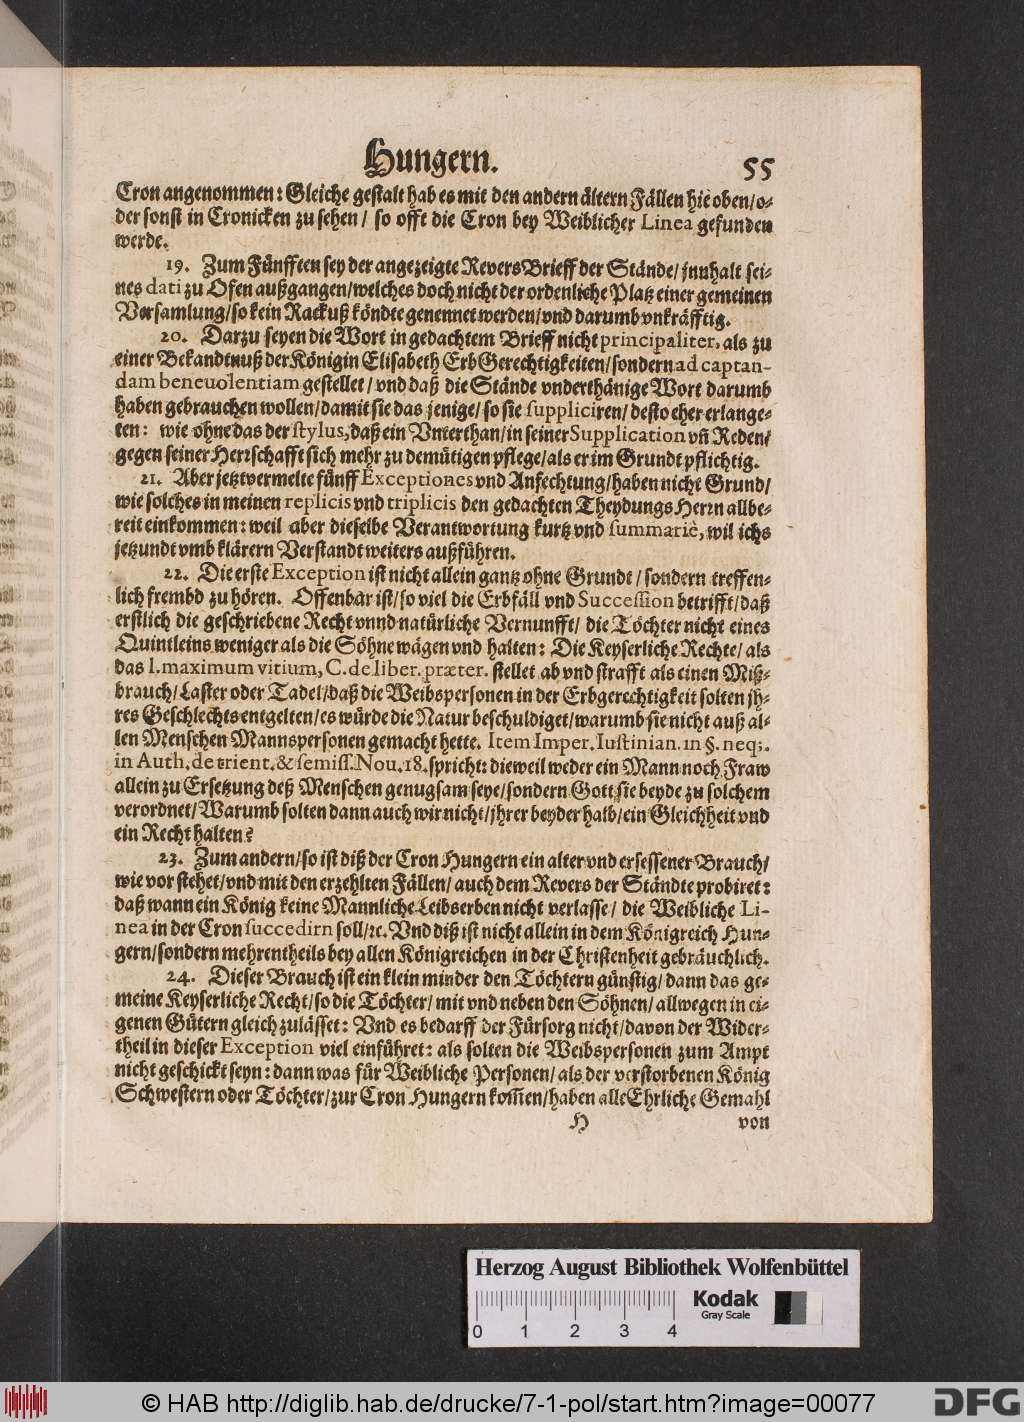 Hungern. 55
Cron angenommen: Gleiche gestalt hab es mit den andern ältern Fällen hie oben/ o-
der sonst in Cronicken zu sehen/ so offt die Cron bey Weiblicher Linea gefunden
werde.
19. Zum Fünfften sey der angezeigte Revers Brieff der Stände/ jnnhalt sei-
nes dati zu Ofen außgangen/ welches doch nicht der ordenliche Platz einer gemeinen
Versamlung/ so kein Rackuß köndte genennet werden/ vnd darumb vnkräfftig.
20. Darzu seyen die Wort in gedachtem Brieff nicht principaliter, als zu
einer Bekandtnuß der Königin Elisabeth ErbGerechtigkeiten/ sondern ad captan-
dam beneuolentiam gestellet/ vnd daß die Stände vnderthänige Wort darumb
haben gebrauchen wollen/ damit sie das jenige/ so sie suppliciren/ desto eher erlange-
ten: wie ohne das der stylus, daß ein Vnterthan/ in seiner Supplication vñ Reden/
gegen seiner Herrschafft sich mehr zu demütigen pflege/ als er im Grundt pflichtig.
21. Aber jetztvermelte fünff Exceptiones vnd Anfechtung/ haben nicht Grund/
wie solches in meinen replicis vnd triplicis den gedachten Theydungs Herrn allbe-
reit einkommen: weil aber dieselbe Verantwortung kurtz vnd summariè, wil ichs
jetzundt vmb klärern Verstandt weiters außführen.
22. Die erste Exception ist nicht allein gantz ohne Grundt/ sondern treffen-
lich frembd zu hören. Offenbar ist/ so viel die Erbfäll vnd Succession betrifft/ daß
erstlich die geschriebene Recht vnnd natürliche Vernunfft/ die Töchter nicht eines
Quintleins weniger als die Söhne wägen vnd halten: Die Keyserliche Rechte/ als
das l. maximum vitium, C. de liber. præter. stellet ab vnd strafft als einen Miß-
brauch/ Laster oder Tadel/ daß die Weibspersonen in der Erbgerechtigkeit solten jh-
res Geschlechts entgelten/ es würde die Natur beschuldiget/ warumb sie nicht auß al-
len Menschen Mannspersonen gemacht hette. Item Imper. Iustinian. in §. neq;.
in Auth. de trient. & semiss. Nou. 18. spricht: dieweil weder ein Mann noch Fraw
allein zu Ersetzung deß Menschen genugsam seye/ sondern Gott sie beyde zu solchem
verordnet/ Warumb solten dann auch wir nicht/ jhrer beyder halb/ ein Gleichheit vnd
ein Recht halten?
23. Zum andern/ so ist diß der Cron Hungern ein alter vnd ersessener Brauch/
wie vor stehet/ vnd mit den erzehlten Fällen/ auch dem Revers der Ständte probiret:
daß wann ein König keine Mannliche Leibserben nicht verlasse/ die Weibliche Li-
nea in der Cron succedirn soll/ ꝛc. Vnd diß ist nicht allein in dem Königreich Hun-
gern/ sondern mehrentheils bey allen Königreichen in der Christenheit gebräuchlich.
24. Dieser Brauch ist ein klein minder den Töchtern günstig/ dann das ge-
meine Keyserliche Recht/ so die Töchter/ mit vnd neben den Söhnen/ allwegen in ei-
genen Gütern gleich zulässet: Vnd es bedarff der Fürsorg nicht/ davon der Wider-
theil in dieser Exception viel einführet: als solten die Weibspersonen zum Ampt
nicht geschickt seyn: dann was für Weibliche Personen/ als der verstorbenen König
Schwestern oder Töchter/ zur Cron Hungern kom̃en/ haben alle Ehrliche Gemahl
H von
Herzog August Bibliothek Wolfenbüttel
Kodak
Gray Scale
0 1 2 3 4
© HAB http://diglib.hab.de/drucke/7-1-pol/start.htm?image=00077
DFG